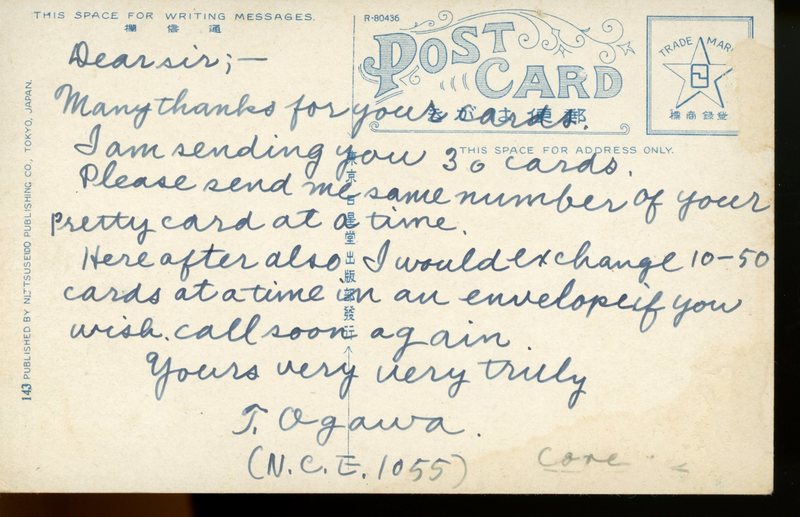 THIS SPACE FOR WRITING MESSAGES.
欄信通
R-80436
POST CARD
きがは便郵
TRADE MARK
標商録登
THIS SPACE FOR ADDRESS ONLY.
Dear sir;—
Many thanks for your cards.
I am sending you 30 cards.
Please send me same number of your
pretty card at a time.
Hereafter also I would exchange 10-50
cards at a time in an envelope if you
wish. call soon again.
Yours very very truly
T. Ogawa.
(N.C.E. 1055)
東京日星堂出版部發行
143 PUBLISHED BY NITTSUSEIDO PUBLISHING CO., TOKYO, JAPAN.